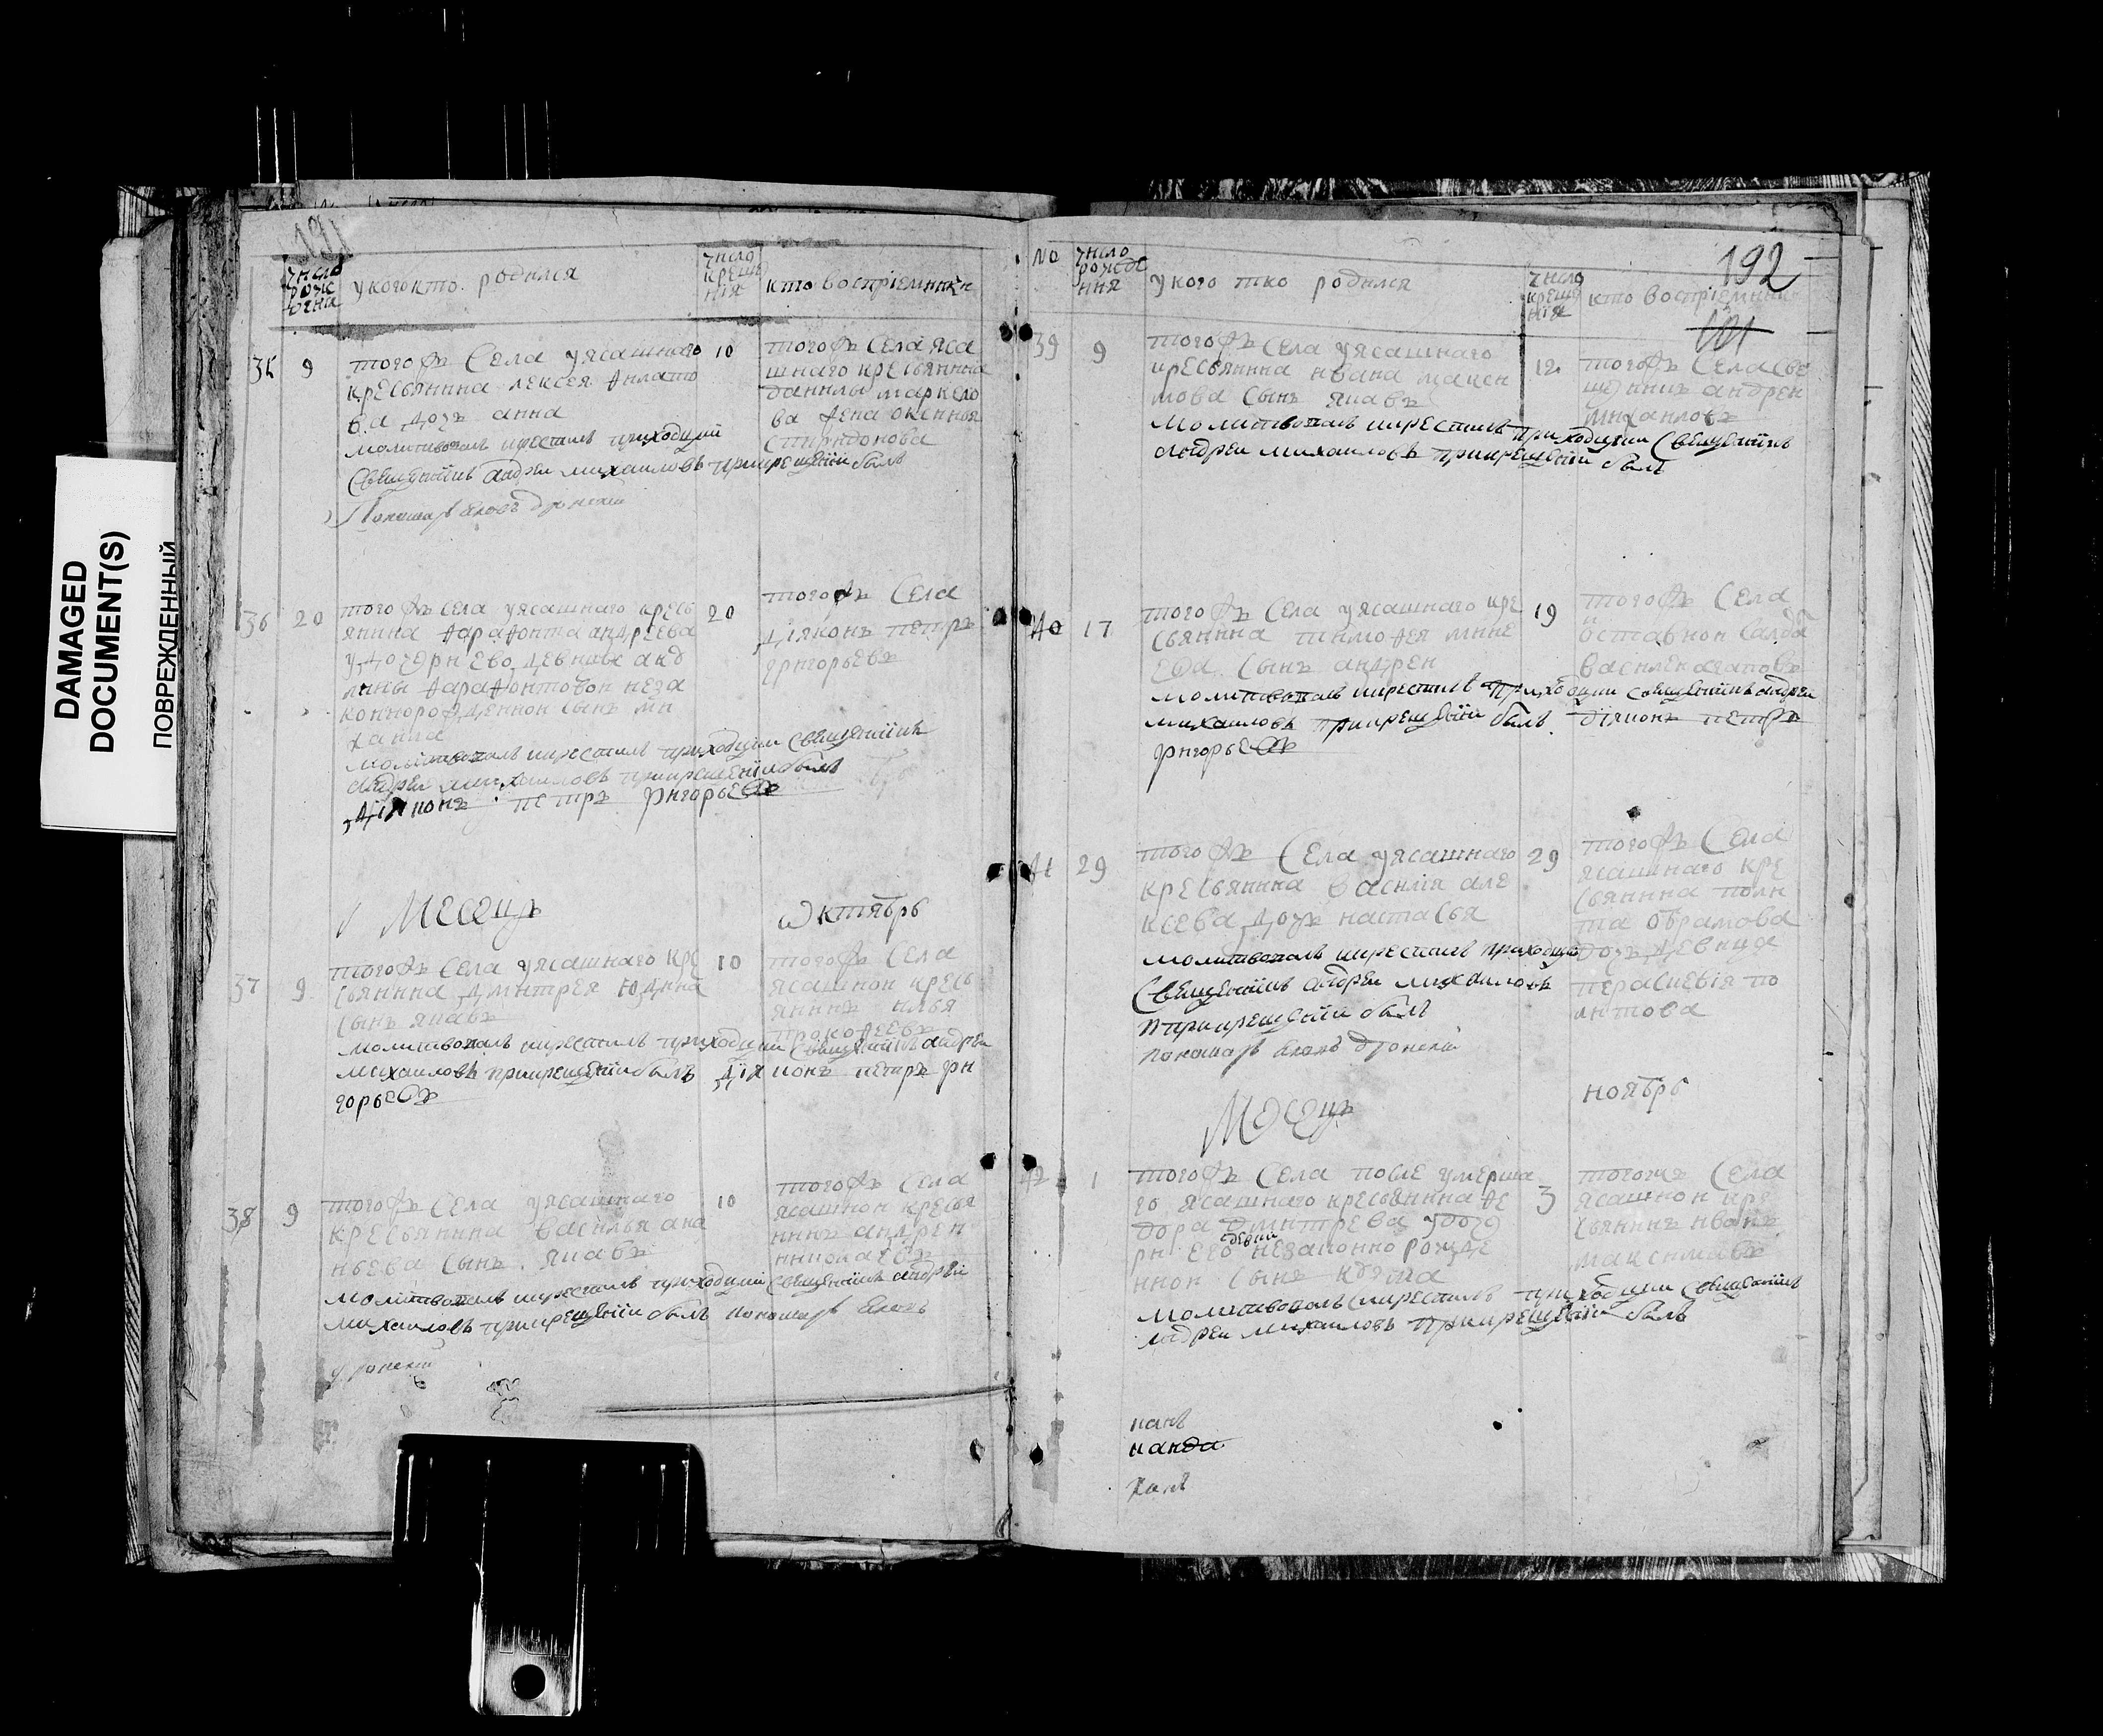 DAMAGED
DOCUMENT(S)
ПОВРЕЖДЕННЫЙ
191
число
рож
дения
у кого кто родился
число
креще
нія
кто воспріемники
35
9
тогожъ села уясашнаго
крестьянина лексея
ва дочь анна
молитвовалъ икрестилъ приходцкии
священникъ андреи михаиловъ прикрещении былъ
Пономарь
10
тогожъ села яса
шнаго крестьянина
данилы маркело
ва жена оксинья
спиридонова
36
20
тогожъ села уясашнаго кресь
янина фарафонта андреева
удочери ево девицы акд
лины фарафонтовои неза
коннорожденнои сынъ ми
хаила
молитвовалъ икрестилъ приходцкии священникъ
андреи михаиловъ прикрещении былъ
діяконъ петръ григорьевъ
20
тогожъ села
діяконъ петръ
григорьевъ
Месецъ
октябрь
37
9
тогожъ села уясашнаго кре
сьянина дмитрея юдина
сынъ яковъ
молитвовалъ икрестилъ приходцкии священникъ андреи
михаиловъ прикрещении былъ діяконъ петръ гри
горьевъ
10
тогожъ села
ясашнои кресь
янинъ илья
прокофеевъ
38
9
тогожъ села уясашнаго
кресьянина василья ана
ньева сынъ яковъ
молитвовалъ икрестилъ приходцкии священникъ андреи
михаиловъ прикрещении былъ пономарь
10
тогожъ села
ясашнои кресья
нинъ андреи
николаевъ
No
число
рожде
ния
у кого тко родился
число
креще
нія
кто воспріемники
192
39
9
тогожъ села уясашнаго
кресьянина ивана макси
мова сынъ яковъ
молитвовалъ икрестилъ приходцкии священникъ
андреи михаиловъ прикрещении былъ
12
тогожъ села све
щенникъ андреи
михаиловъ
40
17
тогожъ села уясашнаго кре
сьянина тимофея мине
ева сынъ андреи
молитвовалъ икрестилъ приходцкии священникъ андреи
михаиловъ прикрещении былъ діяконъ петръ
григорьевъ
19
тогожъ села
оставнои салда
василеи агаповъ
41
29
тогожъ села уясашнаго
кресьянина василія але
ксева дочь настасья
молитвовалъ икрестилъ приходцкии
священникъ андреи михаиловъ
прикрещении былъ
пономарь
29
тогожъ села
ясашнаго кре
сьянина
та обрамова
дочь девица
Месецъ
ноябрь
42
1
тогожъ села после умерша
го ясашнаго кресьянина фе
дора дмитрева удоче
ри его девки незаконно рожде
ннои сынъ козма
молитвовалъ икрестилъ приходцкии священникъ
андреи михаиловъ прикрещении былъ
3
тогожъ села
ясашнои кре
сьянинъ иванъ
максимовъ